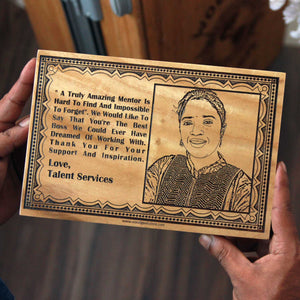 " A Truly Amazing Mentor Is
Hard To Find And Impossible
To Forget". We Would Like To
Say That You're The Best
Boss We Could Ever Have
Dreamed Of Working With.
Thank You For Your
Support And Inspiration.
Love,
Talent Services